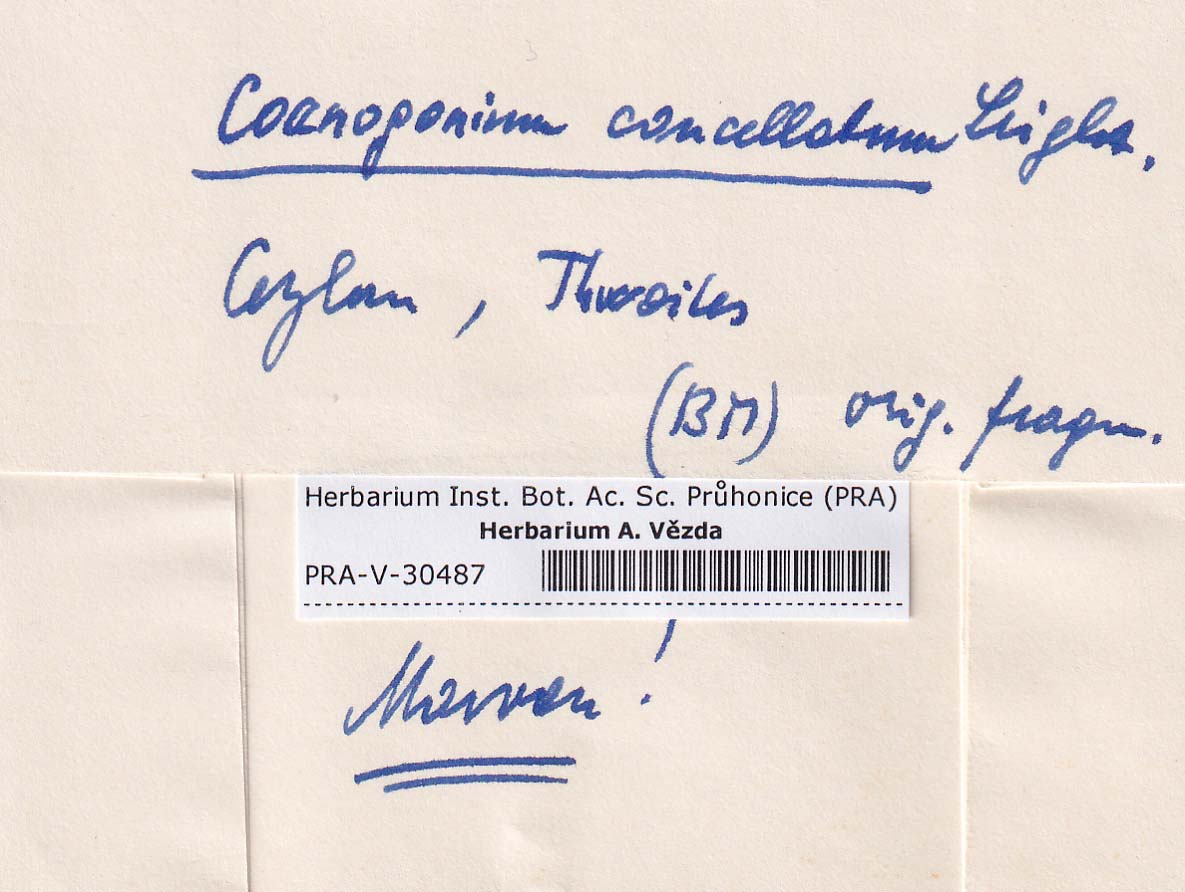 Coenogonium cancellatum Leight.
Ceylan, Thwaites
(BM) orig. fragm.
Herbarium Inst. Bot. Ac. Sc. Průhonice (PRA)
Herbarium A. Vězda
PRA-V-30487
!